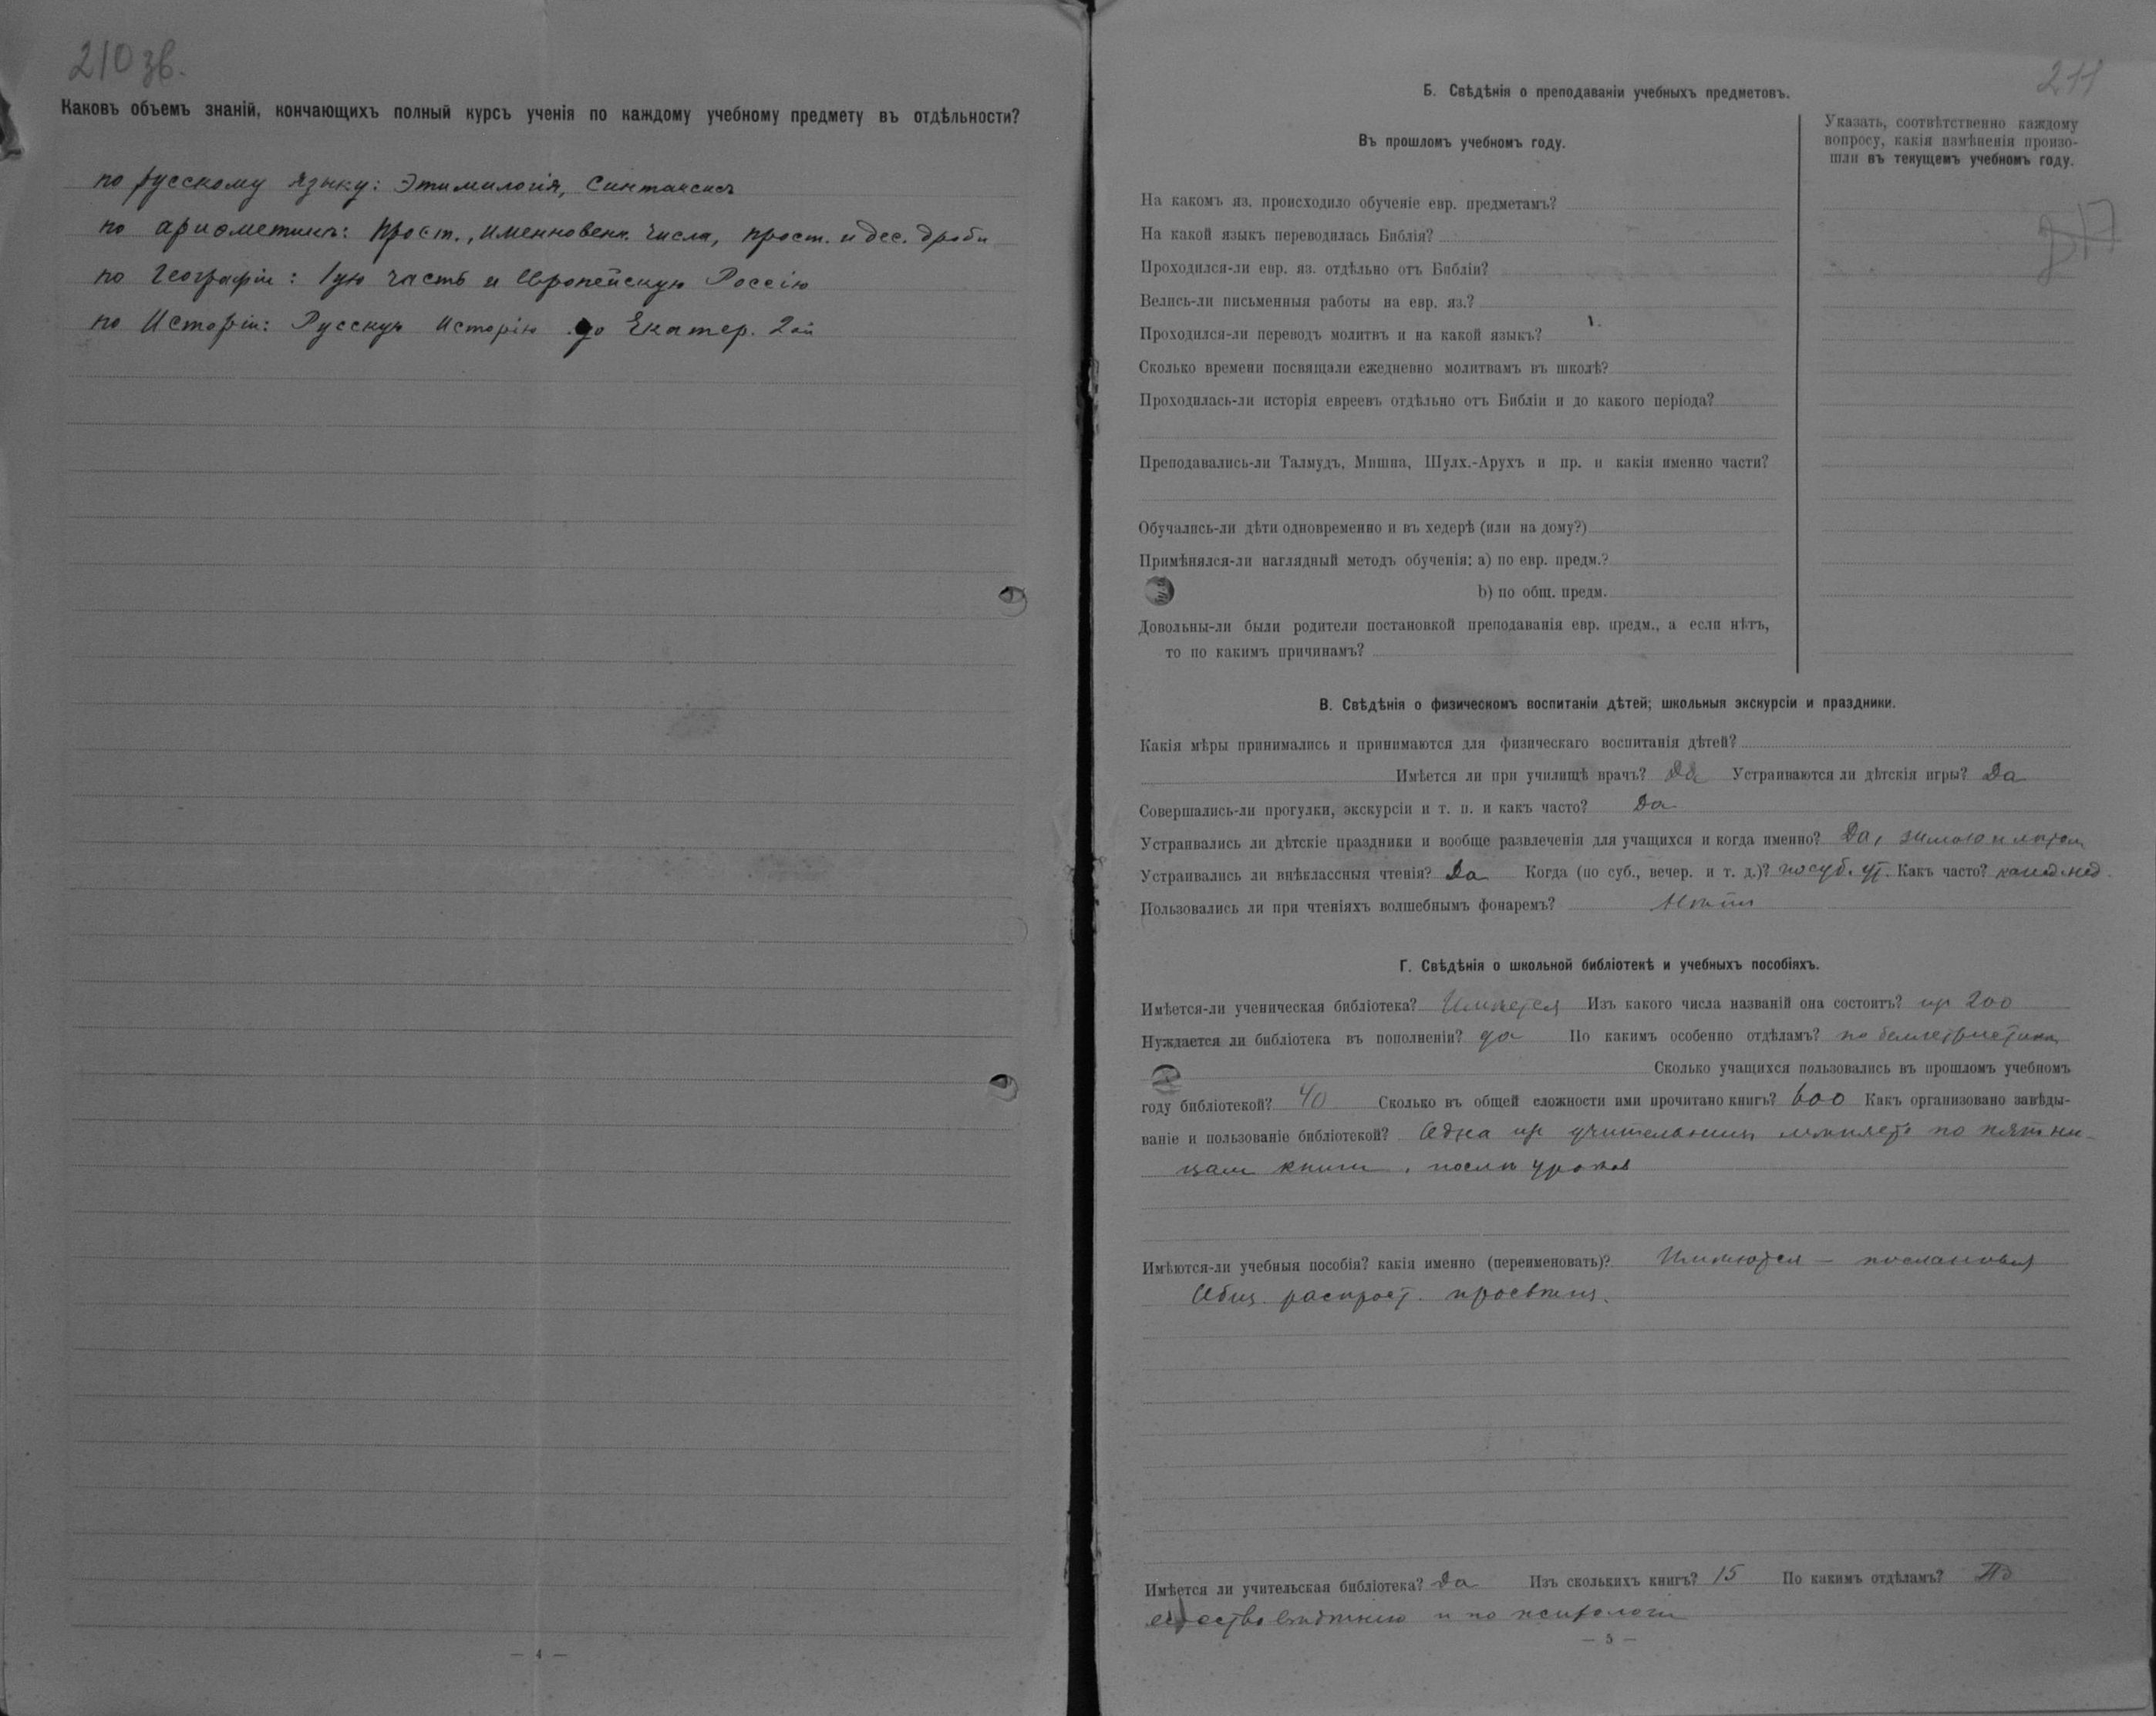 210 зв.
Каковъ объемъ знаній, кончающихъ полный курсъ ученія по каждому учебному предмету въ отдѣльности?
по русскому языку: Этимилогія, Синтаксисъ
по ариѳметикѣ: Прост., именновенн. числа, прост. и дес. дроби
по Географіи: 1ую часть и Европейскую Россію
по Исторіи: Русскую Исторію до Екатер. 2ой
— 4 —
211
Б. Свѣдѣнія о преподаваніи учебныхъ предметовъ.
Въ прошломъ учебномъ году.
Указать, соотвѣтственно каждому
вопросу, какія измѣненія произо-
шли въ текущемъ учебномъ году.
На какомъ яз. происходило обученіе евр. предметамъ?
На какой языкъ переводилась Библія?
Проходился-ли евр. яз. отдѣльно отъ Библіи?
Велись-ли письменныя работы на евр. яз.?
Проходился-ли переводъ молитвъ и на какой языкъ?
Сколько времени посвящали ежедневно молитвамъ въ школѣ?
Проходилась-ли исторія евреевъ отдѣльно отъ Библіи и до какого періода?
Преподавались-ли Талмудъ, Мишна, Шулх.-Арухъ и пр. и какія именно части?
Обучались-ли дѣти одновременно и въ хедерѣ (или на дому?)
Примѣнялся-ли наглядный методъ обученія: а) по евр. предм.?
b) по общ. предм.
Довольны-ли были родители постановкой преподаванія евр. предм., а если нѣтъ,
то по какимъ причинамъ?
В. Свѣдѣнія о физическомъ воспитаніи дѣтей; школьныя экскурсіи и праздники.
Какія мѣры принимались и принимаются для физическаго воспитанія дѣтей?
Имѣется ли при училищѣ врачъ? Да Устраиваются ли дѣтскія игры? Да
Совершались-ли прогулки, экскурсіи и т. п. и какъ часто? Да
Устраивались ли дѣтскіе праздники и вообще развлеченія для учащихся и когда именно? Да, зимою и лѣтом
Устраивались ли внѣклассныя чтенія? Да Когда (по суб., вечер. и т. д.)? по суб. ут. Какъ часто? кажд. нед.
Пользовались ли при чтеніяхъ волшебнымъ фонаремъ?
Г. Свѣдѣнія о школьной библіотекѣ и учебныхъ пособіяхъ.
Имѣется-ли ученическая библіотека? Имѣется Изъ какого числа названій она состоитъ? из 200
Нуждается ли библіотека въ пополненіи? да По какимъ особенно отдѣламъ? по беллетристикѣ
Сколько учащихся пользовались въ прошломъ учебномъ
году библіотекой? 40 Сколько въ общей сложности ими прочитано книгъ? 600 Какъ организовано завѣды-
ваніе и пользованіе библіотекой? Одна из учительницъ мѣняетъ по пятни-
цам книги, послѣ уроков
Имѣются-ли учебныя пособія? какія именно (переименовать)? Имѣются —
Общ. распрост. просвѣщ.
Имѣется ли учительская библіотека? Да Изъ сколькихъ книгъ? 15 По какимъ отдѣламъ? По
естествовѣдѣнію и по психологіи
— 5 —